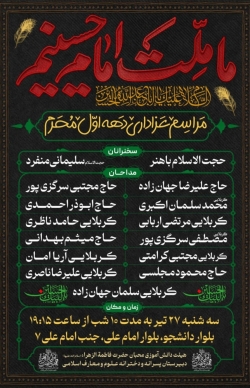 ما ملت امام حسینیم
مراسم عزاداری دهه اول محرم
سخنرانان
حجت الاسلام باهنر
حجت الاسلام سلیمانی منفرد
مداحان
حاج علیرضا جهان زاده
حاج مجتبی سرگزی پور
کربلایی محمد سلمان اکبری
حاج ابوذر احمدی
کربلایی مرتضی اربابی
کربلایی حامد ناظری
مصطفی سرگزی پور
حاج میثم بهدانی
کربلایی مجتبی کرامتی
کربلایی آریا امان
حاج محمود مجلسی
کربلایی علیرضا ناصری
کربلایی سلمان جهان زاده
زمان و مکان
سه شنبه ۲۷ تیر به مدت ۱۰ شب از ساعت ۱۹:۱۵
بلوار دانشجو، بلوار امام علی، جنب امام علی ۷
هیئت دانش آموزی محبان حضرت فاطمة الزهراء
دبیرستان پسرانه و دخترانه علوم و معارف اسلامی